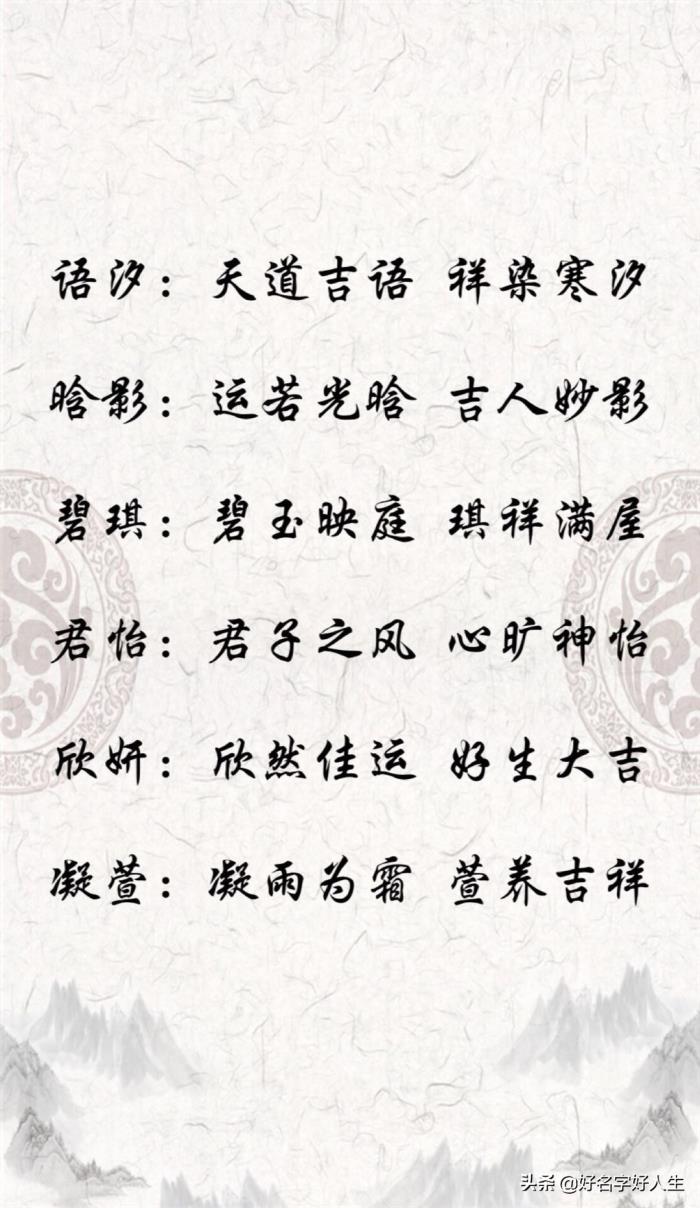 语汐：天道吉语 祥染寒汐
晗影：运若光晗 吉人妙影
碧琪：碧玉映庭 琪祥满屋
君怡：君子之风 心旷神怡
欣妍：欣然佳运 好生大吉
凝萱：凝雨为霜 萱养吉祥
头条 @好名字好人生